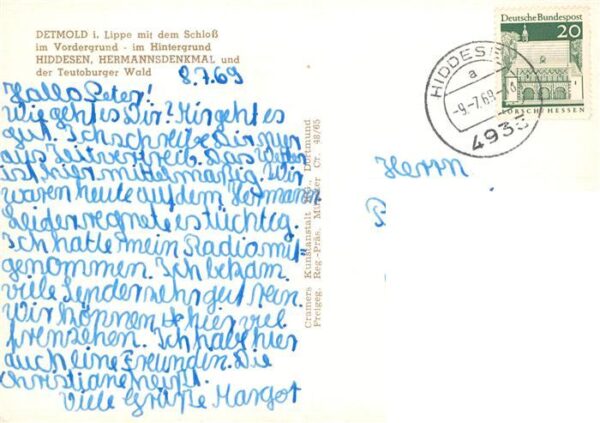 DETMOLD i. Lippe mit dem Schloß
im Vordergrund - im Hintergrund
HIDDESEN, HERMANNSDENKMAL und
der Teutoburger Wald
8.7.69
Hallo Peter!
Wie geht es Dir? Mir geht es
gut. Ich schreibe Dir nur
aus Zeitvertreib. Das Wetter
ist hier mittelmäßig. Wir
waren heute auf dem Hermann
Leider regnete es tüchtig.
Ich hatte mein Radio mit
genommen. Ich bekam
viele Sender sehr gut rein.
Wir können hier viel
fernsehen. Ich habe hier
auch eine Freundin. Die
Christiane heißt.
Viele Grüße Margot
Cramers Kunstanstalt Dortmund
Freigeg. Reg.-Präs. Münster Cr. 48/65
Deutsche Bundespost
20
LORSCH/HESSEN
HIDDESEN
a
-9.-7.69-
493
Herrn